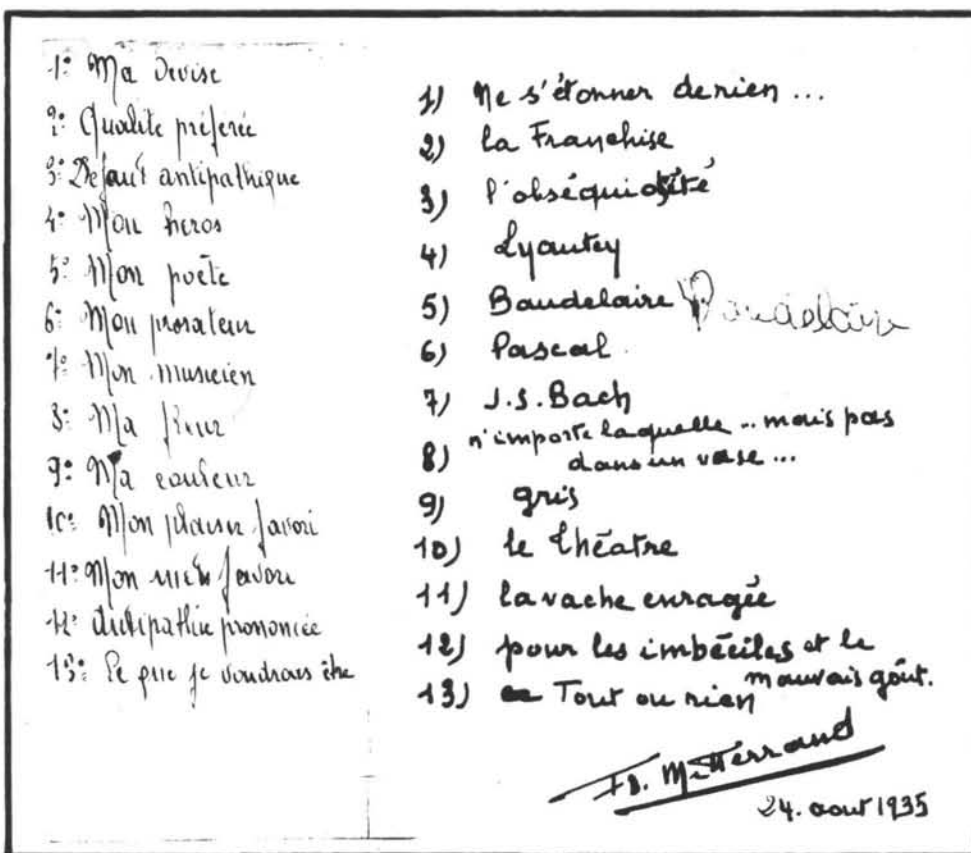 1° Ma Devise
2° Qualité préferée
3° Defaut antipathique
4° Mon heros
5° Mon poète
6° Mon prosateur
7° Mon musicien
8° Ma fleur
9° Ma couleur
10° Mon plaisir favori
11° Mon mets favori
12° Antipathie prononcée
13° Ce que je voudrais être
1) Ne s'étonner de rien ...
2) la Franchise
3) l'obséquiosité
4) Lyautey
5) Baudelaire Baudelaire
6) Pascal.
7) J.S. Bach
8) n'importe laquelle .. mais pas
dans un vase ...
9) gris
10) le théatre
11) la vache enragée
12) pour les imbéciles et le
mauvais goût.
13) Tout ou rien
Fs. Mitterrand
24. aout 1935